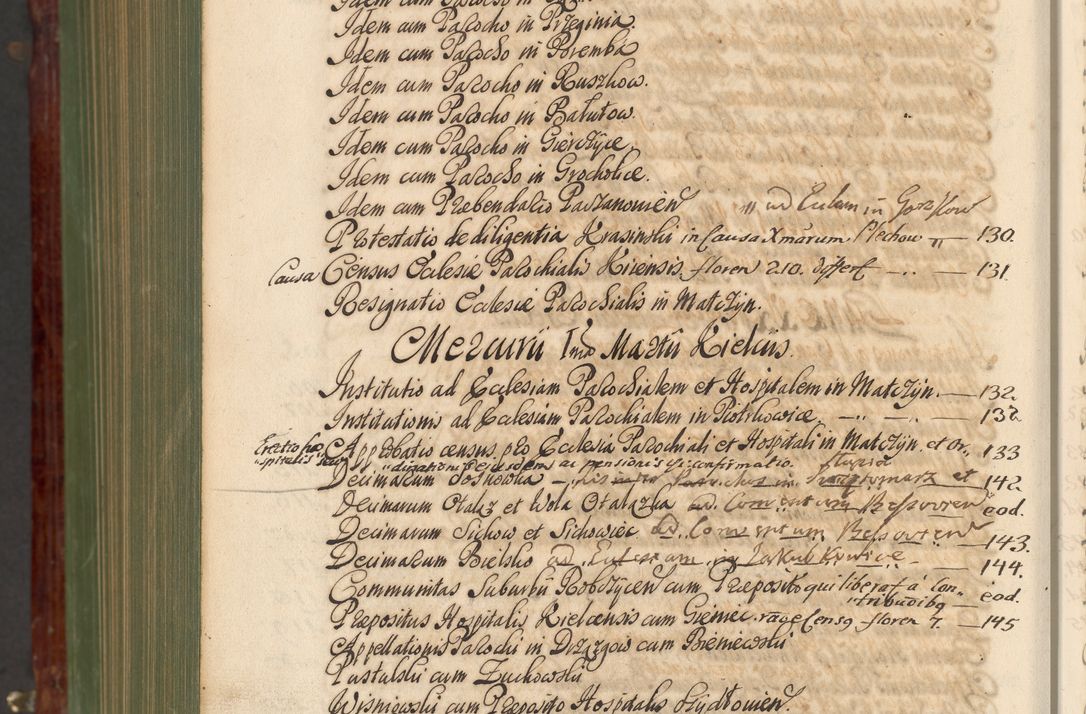 Idem cum Parocho in Przeginia.
Idem cum Parocho in Poremba
Idem cum Parocho in Ruszkow.
Idem cum Parocho in Bałutow.
Idem cum Parocho in Gierczÿce.
Idem cum Parocho in Grocholice.
Idem cum Præbendario Paczanovien ad Eccl̃am in Gorzkow
Protestatio de diligentia Krasinski in Causa Xmarum Plechow — 130.
Causa Census Ecclesiæ Parochialis Kiiensis floren 210. — 131
Resignatio Ecclesiæ Parochialis in Matczÿn.
Mercurii 1ma Martii Kielciis.
Institutio ad Ecclesiam Parochialem et Hospitalem in Matczÿn. — 132.
Institutionis ad Ecclesiam Parochialem in Piotrkowice — 132
Erectio ho
spitalis
Approbatio census pro Ecclesia Parochiali et Hospitali in Matczÿn et or- 133
dinationis ejusdem ac pensionis confirmatio.
Decimarum Sosnowka — in et 142
Decimarum Otałąz et Wola Otalązka ad Conventum eod.
Decimarum Sichow et Sichowiec ad Conventum — 143.
Decimarum Bielsko ad in Jakubkowice — 144.
Communitas Suburbii Kobdzÿcen cum Præposito qui liberat à Con- eod.
tribuõibq —
Præpositus Hospitalis Kielcensis cum Gieniec. rãõe Censq floren 7. — 145
Appellationis Parochi in Drzązgow cum Bieniewski
Pustulski cum Zuchowski
Wisniewski cum Præposito Hospitalis Szÿdłovien.